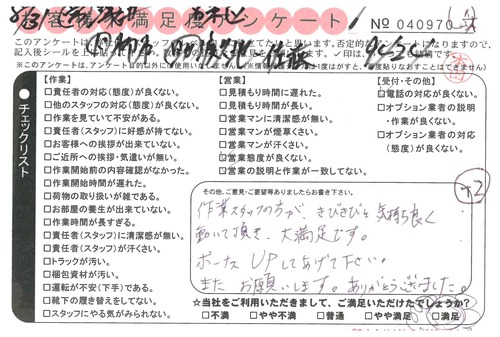 お客様満足度アンケート
No 040970
このアンケートは
記入後シールを
※このアンケートは、アンケート目的以外には使用いたしません。
チェックリスト
【作業】
□責任者の対応(態度)が良くない。
□他のスタッフの対応(態度)が良くない。
□作業を見ていて不安がある。
□責任者(スタッフ)に好感が持てない。
□お客様への挨拶が出来ていない。
□ご近所への挨拶・気遣いが無い。
□作業開始前の内容確認がなかった。
□作業開始時間が遅れた。
□荷物の取り扱いが雑である。
□お部屋の養生が出来ていない。
□作業時間が長すぎる。
□責任者(スタッフ)に清潔感が無い。
□責任者(スタッフ)が汗くさい。
□トラックが汚い。
□梱包資材が汚い。
□運転が不安(下手)である。
□靴下の履き替えをしてない。
□スタッフにやる気がみられない。
【営業】
□見積もり時間に遅れた。
□見積もり時間が長い。
□営業マンに清潔感が無い。
□営業マンが煙草くさい。
□営業マンが汗くさい。
□営業態度が良くない。
□営業の説明と作業が一致してない。
【受付・その他】
□電話の対応が良くない。
□オプション業者の説明
・作業が良くない。
□オプション業者の対応
(態度)が良くない。
その他、ご意見・ご要望等ありましたらお書き下さい。
作業スタッフの方が、きびきびと気持ち良く
動いて頂き、大満足です。
ボーナスUPしてあげて下さい。
また お願いします。ありがとうございました。
+2
☆当社をご利用いただきまして、ご満足いただけたでしょうか?
□不満 □やや不満 □普通 □やや満足 □満足